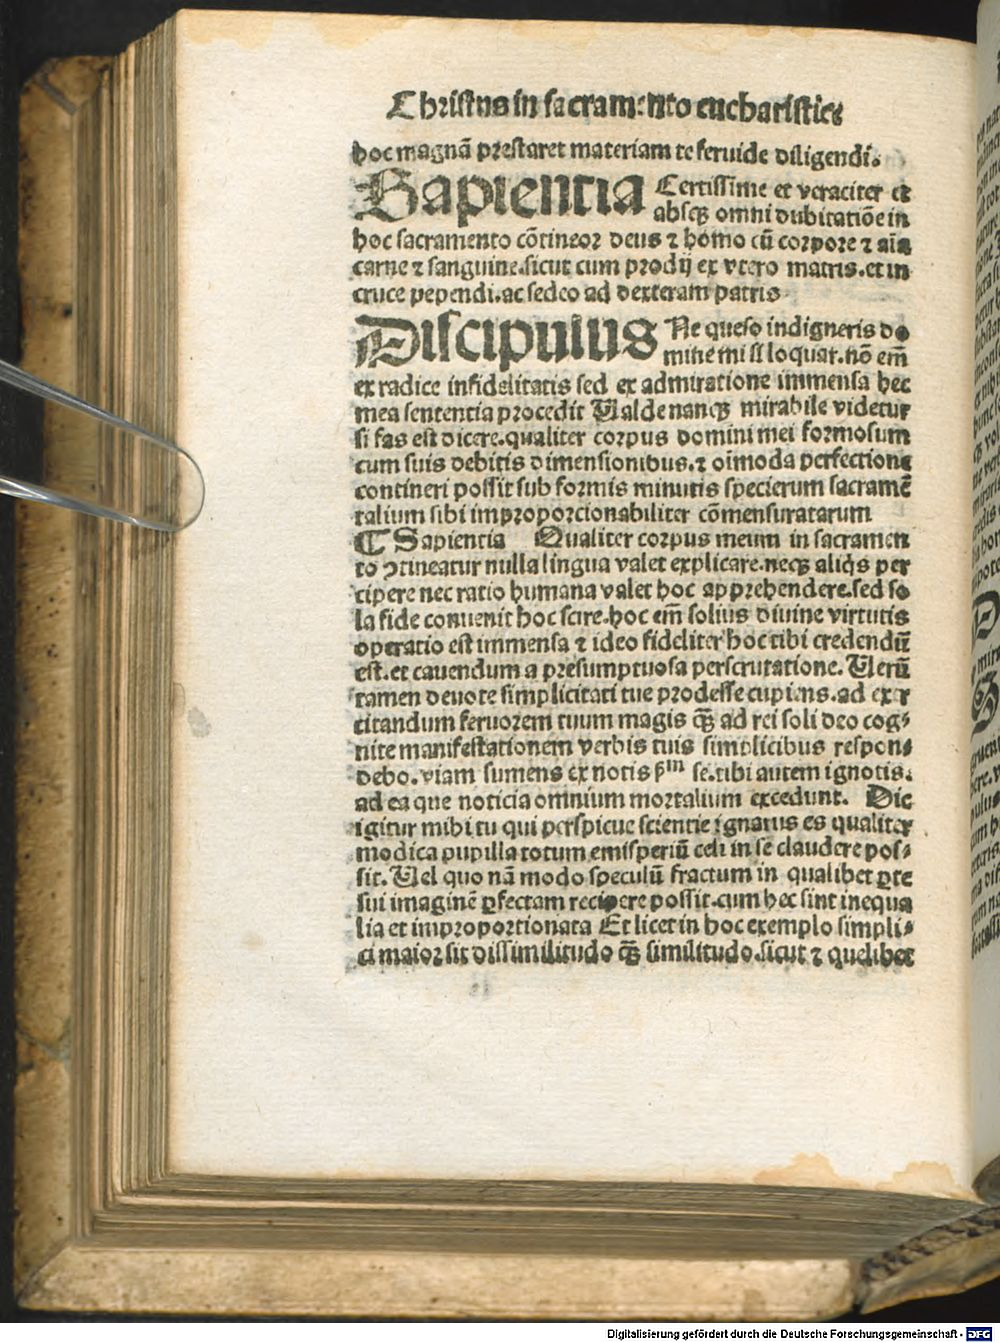 Christus in sacramento eucharistice
hoc magnã prestaret materiam te feruide diligendi.
Sapientia Certissime et veraciter et
absqꝫ omni dubitatiõe in
hoc sacramento cõtineor deus ⁊ homo cũ corpore ⁊ aĩa
carne ⁊ sanguine.sicut cum prodij ex vtero matris.et in
cruce pependi.ac sedeo ad dexteram patris
Discipulus Ne queso indigneris do
mine mi si loquar.nõ em̃
ex radice infidelitatis sed ex admiratione immensa hec
mea sententia procedit Ualde nanqꝫ mirabile videtur
si fas est dicere.qualiter corpus domini mei formosum
cum suis debitis dimensionibus.⁊ oĩmoda perfectione
contineri possit sub formis minutis specierum sacramẽ
talium sibi improporcionabiliter cõmensuratarum
¶ Sapientia Qualiter corpus meum in sacramen
to ꝯtineatur nulla lingua valet explicare.neqꝫ aliq̃s per
cipere nec ratio humana valet hoc apprehendere.sed so
la fide conuenit hoc scire.hoc em̃ solius diuine virtutis
operatio est immensa ⁊ ideo fideliter hoc tibi credendũ
est.et cauendum a presumptuosa perscrutatione. Uerũ
tamen deuote simplicitati tue prodesse cupiens.ad exer
citandum feruorem tuum magis q̃ꝫ ad rei soli deo cog⸗
nite manifestationem verbis tuis simplicibus respon⸗
debo.viam sumens ex notis ẜm se.tibi autem ignotis.
ad ea que noticia omnium mortalium excedunt. Dic
igitur mihi tu qui perspicue scientie ignarus es qualiter
modica pupilla totum emisperiũ celi in se claudere pos⸗
sit. Uel quo nã modo speculũ fractum in qualibet ꝑte
sui imaginẽ ꝑfectam recipere possit.cum hec sint inequa
lia et improportionata Et licet in hoc exemplo simpli⸗
ci maior sit dissimilitudo q̃ꝫ similitudo.sicut ⁊ quelibet
Digitalisierung gefördert durch die Deutsche Forschungsgemeinschaft - DFG